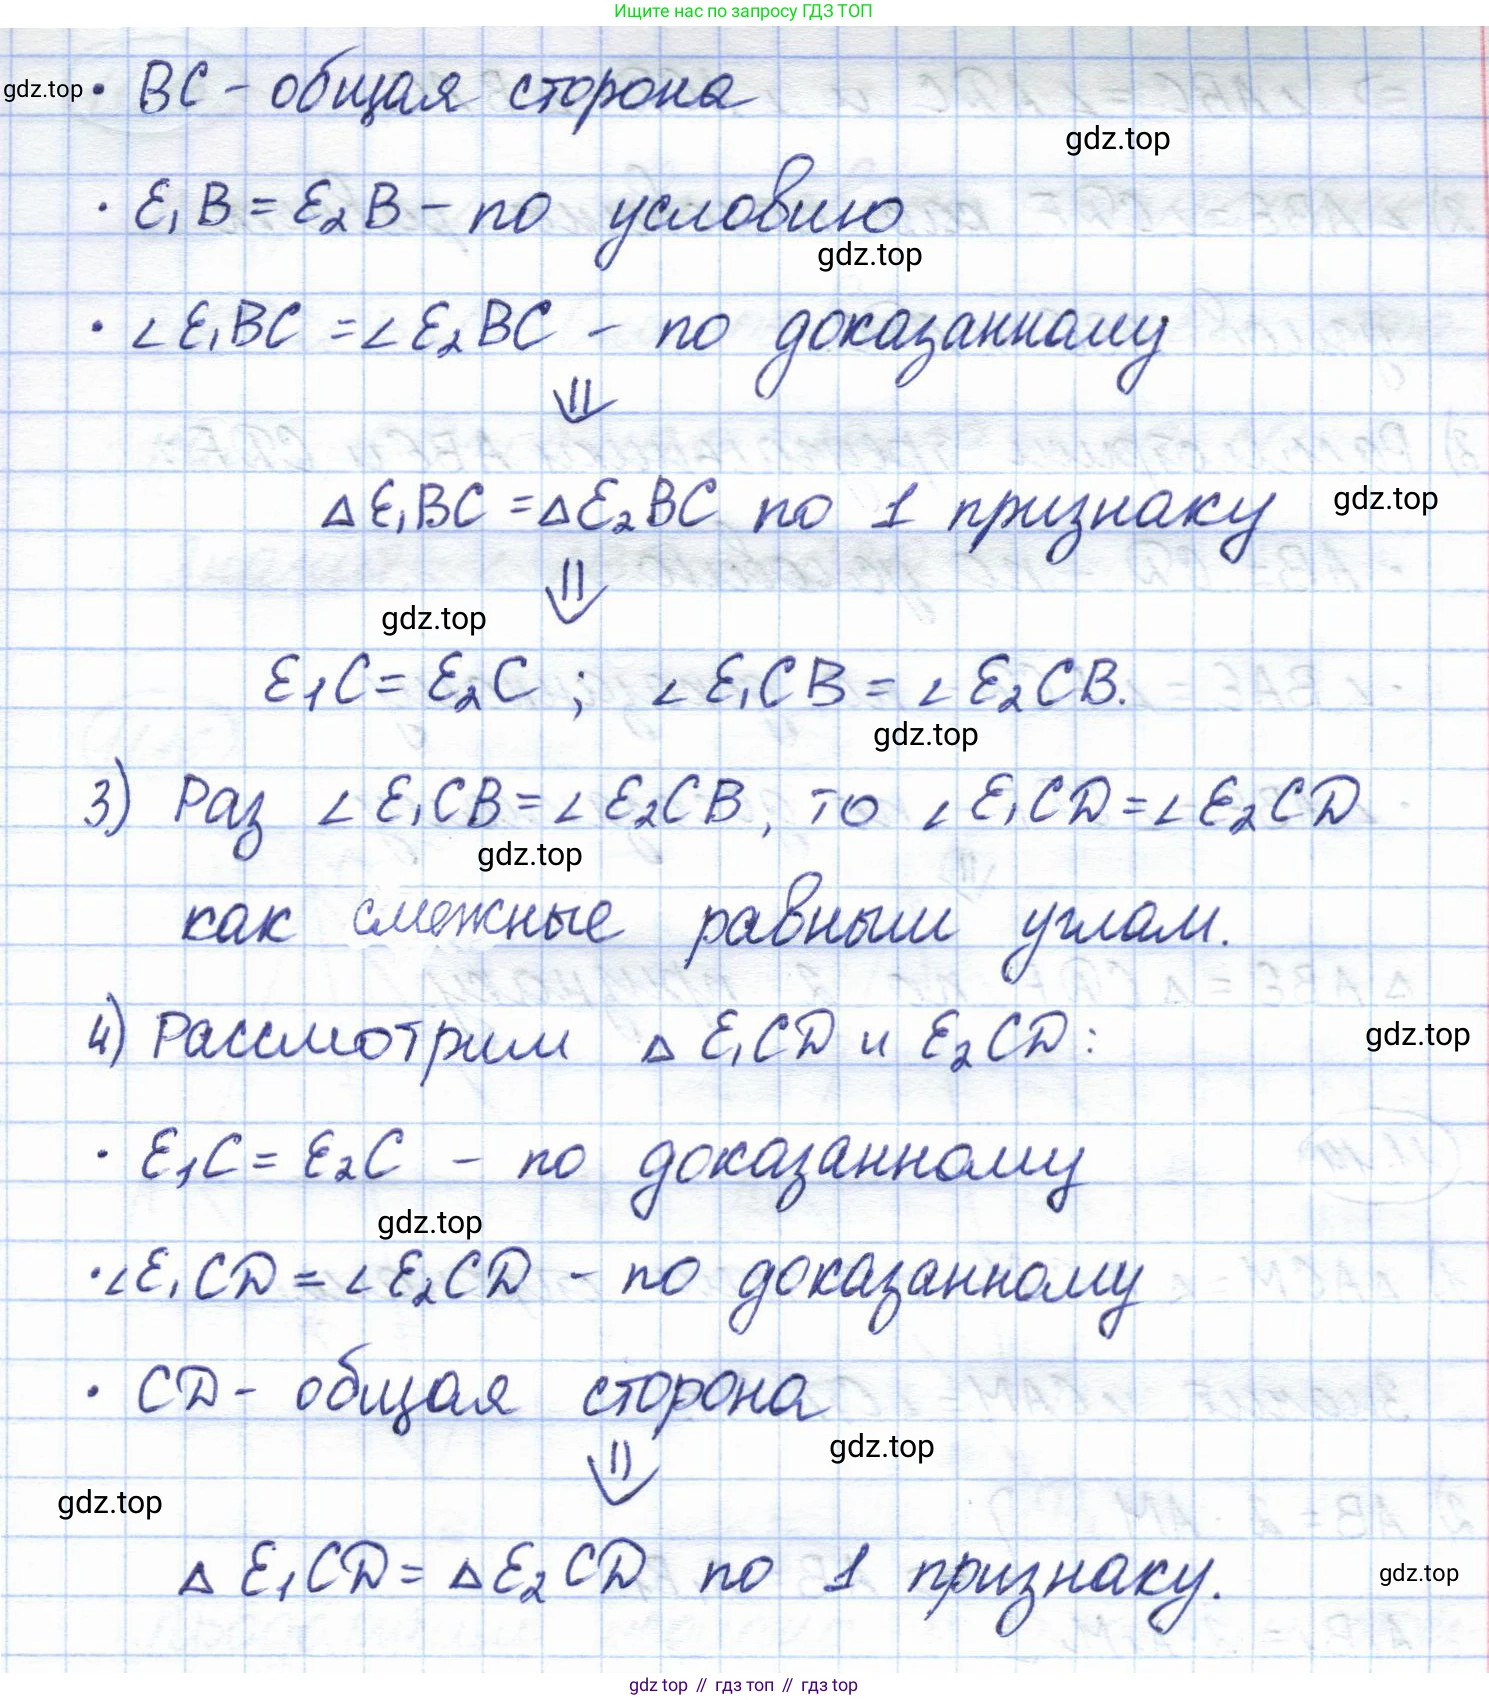 Ищите нас по запросу ГДЗ ТОП
gdz.top • BC - общая сторона
gdz.top
• E₁B = E₂B - по условию
gdz.top
• ∠E₁BC = ∠E₂BC - по доказанному
⇓
△E₁BC = △E₂BC по 1 признаку gdz.top
⇓
gdz.top
E₁C = E₂C ; ∠E₁CB = ∠E₂CB.
gdz.top
3) Раз ∠E₁CB = ∠E₂CB, то ∠E₁CD = ∠E₂CD
gdz.top
как смежные равным углам.
4) Рассмотрим △ E₁CD и E₂CD: gdz.top
• E₁C = E₂C - по доказанному
gdz.top
• ∠E₁CD = ∠E₂CD - по доказанному
• CD - общая сторона
gdz.top
⇓
gdz.top
△ E₁CD = △E₂CD по 1 признаку. gdz.top
gdz top // гдз топ // гдз top